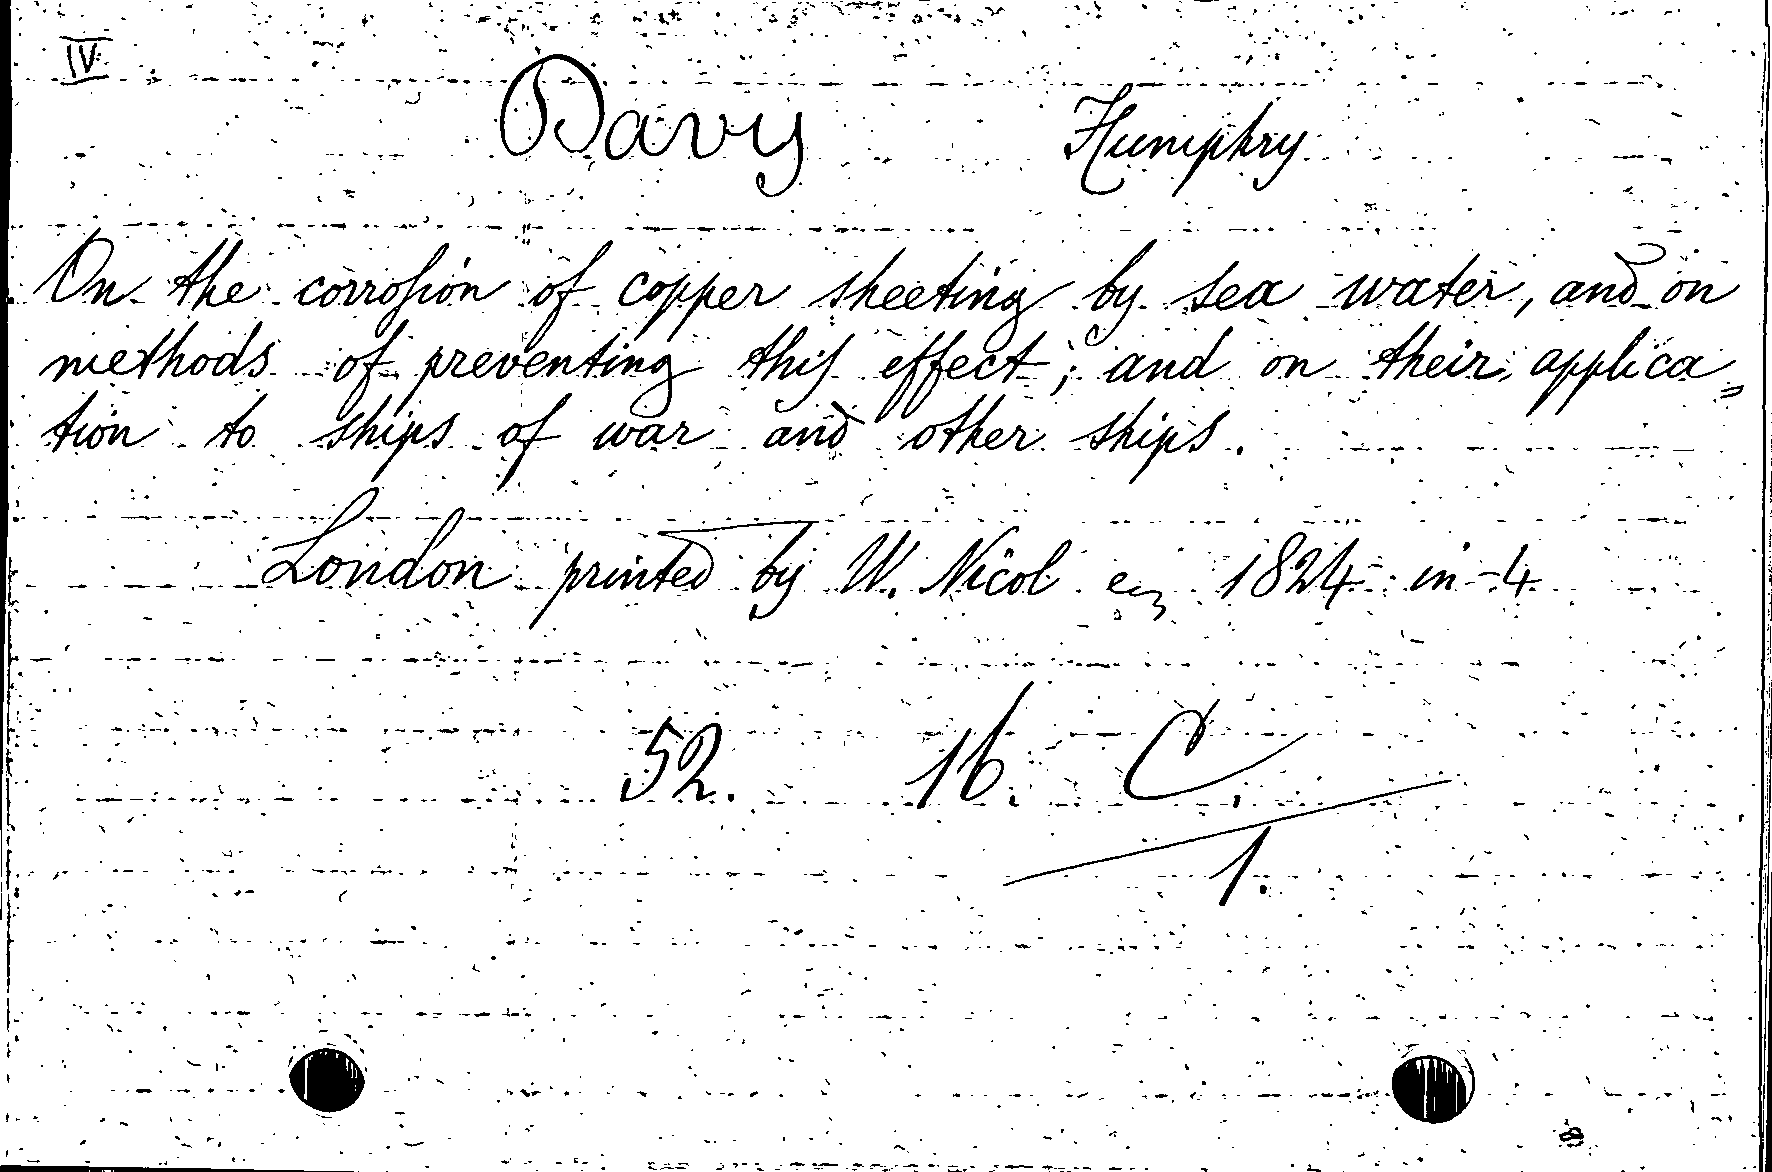 IV
Davy Humphry
On the corrosion of copper sheeting by sea water, and on
methods of preventing this effect; and on their applica=
tion to ships of war and other ships.
London printed by W. Nicol 1824 in-4
52. 16. C.
1.